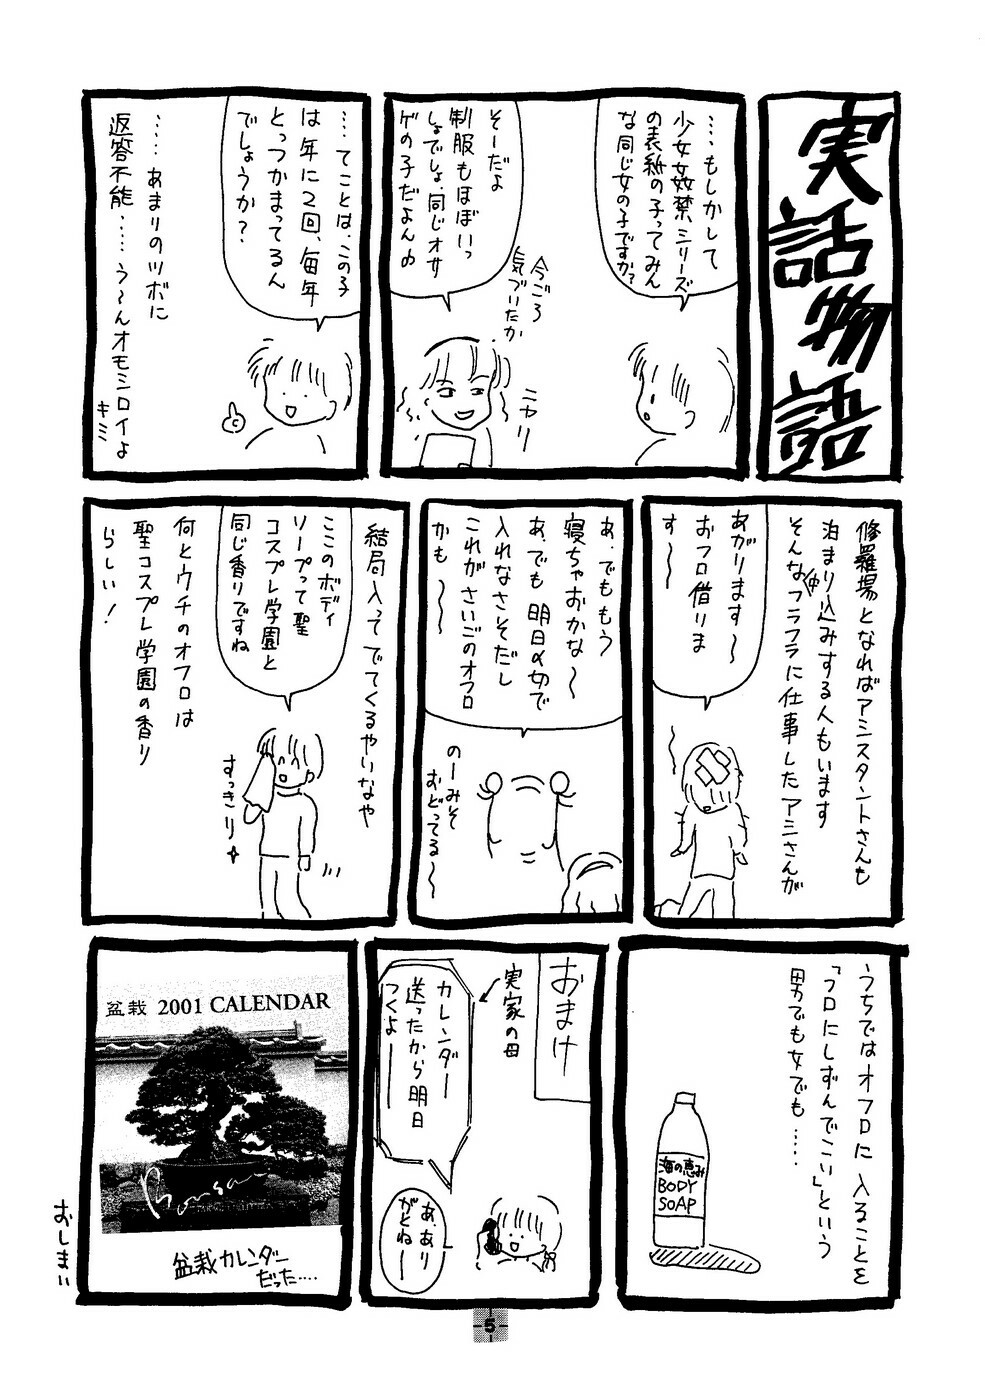 実話物語
…もしかして
少女姦禁シリーズ
の表紙の子ってみん
な同じ女の子ですか?
今ごろ
気づいたか
ニヤリ
そーだよ
制服もほぼいっ
しょでしょ、同じオサ
ゲの子だよん♪
…てことは、この子
は年に2回、毎年
とっつかまってるん
でしょうか?
…… あまりのツボに
返答不能……う〜んオモシロイよ
キミ
修羅場となればアシスタントさんも
泊まり込みする人もいます
そんな中フラフラに仕事したアシさんが
あがります〜
おフロ借りま
す〜
あ、でももう
寝ちゃおかな〜
あ、でも明日〆切で
入れなさそだし
これがさいごのオフロ
かも〜〜
のーみそ
おどってる〜
結局入ってでてくるやいなや
ここのボディ
ソープって聖
コスプレ学園と
同じ香りですね
すっきり
何とウチのオフロは
聖コスプレ学園の香り
らしい!
うちではオフロに入ることを
「フロにしずんでこい」という
男でも女でも……
海の恵み
BODY
SOAP
おまけ
実家の母
カレンダー
送ったから明日
つくよー
あ、あり
がとねー
盆栽 2001 CALENDAR
Bonsai
盆栽カレンダー
だった…
おしまい
5